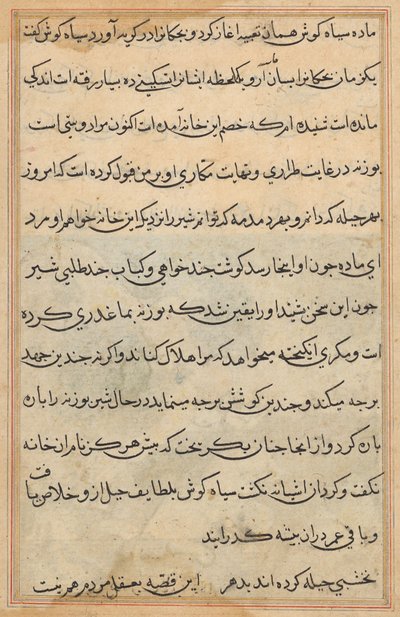 ماده سیاه کوش همان تعبیه اغاز کرد و بچکانرا در کریه آورد سیاه کوش کفت
یکزمان بچکانرا و یکلحظه ایشانرا تسکینی ده بسیار رفته است اندکی
مانده است شنیده ام که خصم این خانه آمده است اکنون مرا دوستی است
بوزنه در غایت طراری و نهایت مکاری او بر من قبول کرده است که امروز
بهر حیله که دانم و بهر دمدمه که توانم شیر را نزدیک این خانه خواهم اورد
ای ماده چون او اینجا رسد کوشت چند خواهی و کباب چند طلبی شیر
چون این سخن شنید او را یقین شد که بوزنه بما غدری کرده
است و مکری انکیخته میخواهد که مرا هلاک کناند و اکرنه چندین جهد
بر چه میکند و چندین کوشش بر چه مینماید در حال شیر بوزنه را پاره
پاره کرد و از انجا چنان بکریخت که بیش هرکز نام از خانه
نکفت و کرد از اشیانه نکشت سیاه کوش بلطایف حیل ازو خلاص یافت
و باقی عمر دران بیشه کذرانید
نخشبی حیله کرده اند بدهر این قصه بعقل مردم هم نیست